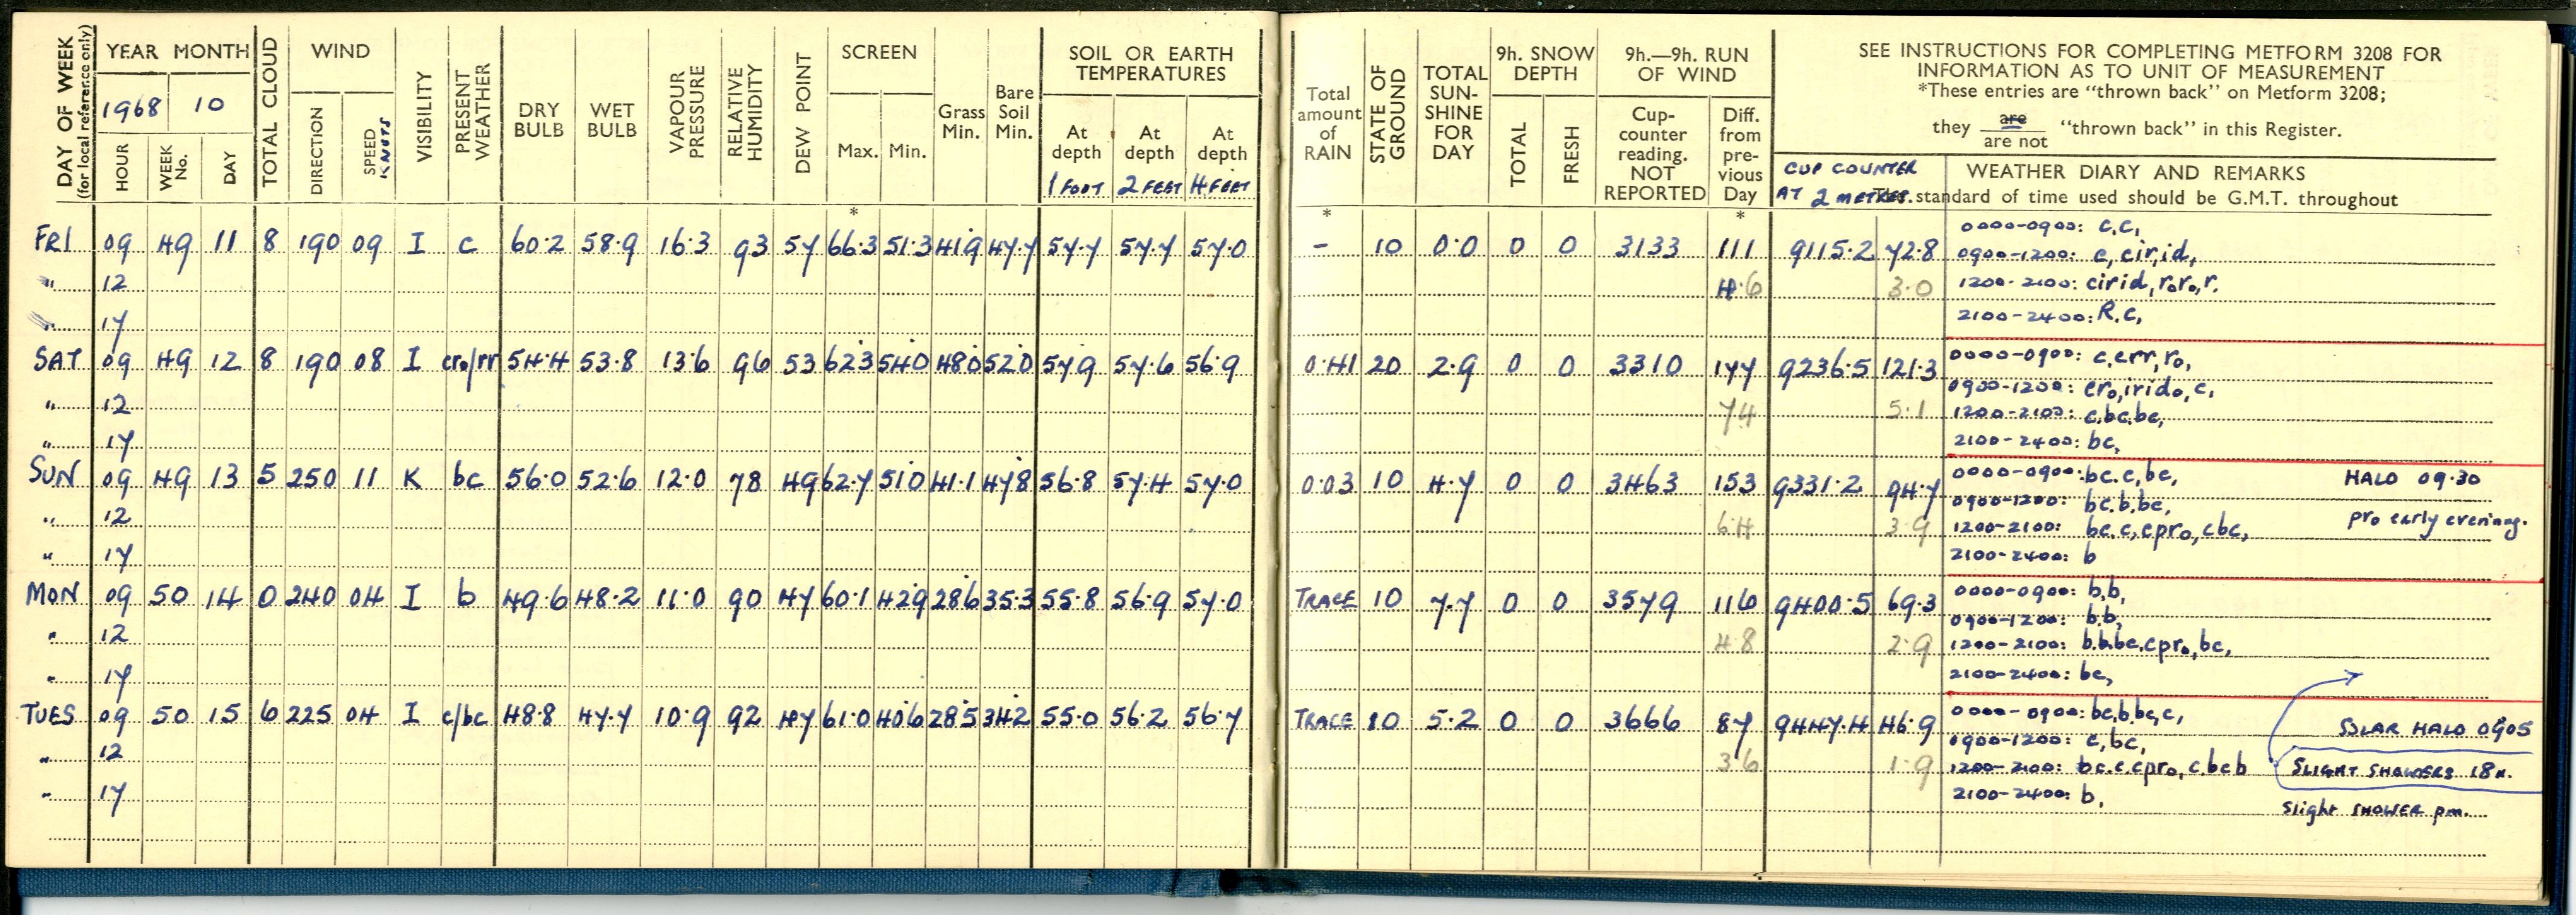 DAY OF WEEK
(for local referer.ce only)
YEAR MONTH
1968 10
HOUR WEEK No. DAY
TOTAL CLOUD
WIND
DIRECTION SPEED KNOTS
VISIBILITY
PRESENT WEATHER
DRY BULB
WET BULB
VAPOUR PRESSURE
RELATIVE HUMIDITY
DEW POINT
SCREEN
Max. Min.
Grass Min.
Bare Soil Min.
SOIL OR EARTH TEMPERATURES
At depth 1 FOOT
At depth 2 FEET
At depth 4 FEET
Total amount of RAIN
STATE OF GROUND
TOTAL SUN-SHINE FOR DAY
9h. SNOW DEPTH
TOTAL FRESH
9h.—9h. RUN OF WIND
Cup-counter reading. NOT REPORTED
Diff. from pre-vious Day
SEE INSTRUCTIONS FOR COMPLETING METFORM 3208 FOR
INFORMATION AS TO UNIT OF MEASUREMENT
*These entries are "thrown back" on Metform 3208;
they are / are not "thrown back" in this Register.
CUP COUNTER AT 2 METRES
WEATHER DIARY AND REMARKS
The standard of time used should be G.M.T. throughout
* * *
FRI 09 49 11 8 190 09 I c 60.2 58.9 16.3 93 57 66.3 51.3 41.9 47.7 57.7 57.7 57.0 - 10 0.0 0 0 3133 111 9115.2 72.8
0000-0900: c,c,
0900-1200: c,cir,id,
" 12 4.6 3.0 1200-2100: cirid,roro,r.
" 17 2100-2400: R.c,
SAT 09 49 12 8 190 08 I cro/rr 54.4 53.8 13.6 96 53 62.3 54.0 48.0 52.0 57.9 57.6 56.9 0.41 20 2.9 0 0 3310 177 9236.5 121.3
0000-0900: c,err,ro,
0900-1200: cro,irido,c,
" 12 7.4 5.1 1200-2100: c,bc,bc,
" 17 2100-2400: bc,
SUN 09 49 13 5 250 11 K bc 56.0 52.6 12.0 78 49 62.7 51.0 41.1 47.8 56.8 57.4 57.0 0.03 10 4.7 0 0 3463 153 9331.2 94.7
0000-0900: bc.c,bc, HALO 09.30
0900-1200: bc.b.bc,
" 12 6.4 3.9 1200-2100: bc.c,cpro,cbc, pro early evening.
" 17 2100-2400: b
MON 09 50 14 0 240 04 I b 49.6 48.2 11.0 90 47 60.1 42.9 28.6 35.3 55.8 56.9 57.0 TRACE 10 7.7 0 0 3579 116 9400.5 69.3
0000-0900: b,b,
0900-1200: b.b,
" 12 4.8 2.9 1200-2100: b.b.bc,cpro,bc,
" 17 2100-2400: bc,
TUES 09 50 15 6 225 04 I c/bc 48.8 47.7 10.9 92 47 61.0 40.6 28.5 34.2 55.0 56.2 56.7 TRACE 10 5.2 0 0 3666 87 9447.4 46.9
0000-0900: bc,b,bc,c, SOLAR HALO 0905
0900-1200: c,bc,
" 12 3.6 1.9 1200-2100: bc.c.cpro,c.bcb SLIGHT SHOWERS 18h.
" 17 2100-2400: b,
Slight SHOWER pm.